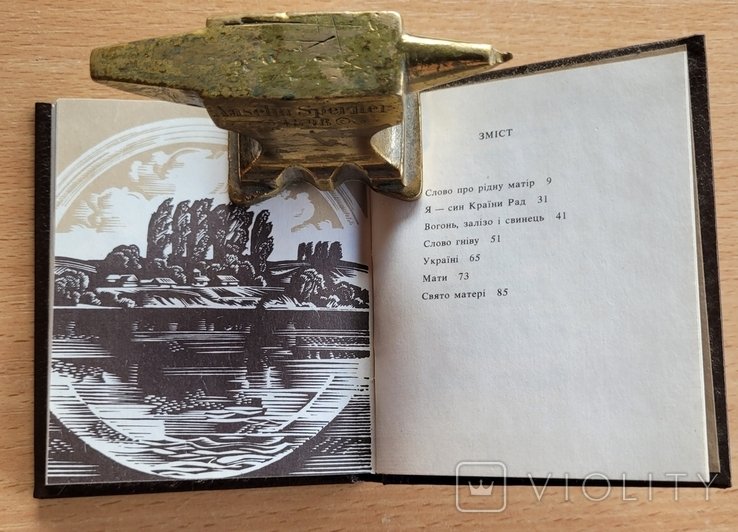 Anselm Sperner
ЗМІСТ
Слово про рідну матір 9
Я — син Країни Рад 31
Вогонь, залізо і свинець 41
Слово гніву 51
Україні 65
Мати 73
Свято матері 85
VIOLITY